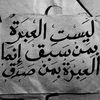 ليست العبرة
بمن سبق إنما
العبرة بمن صدق